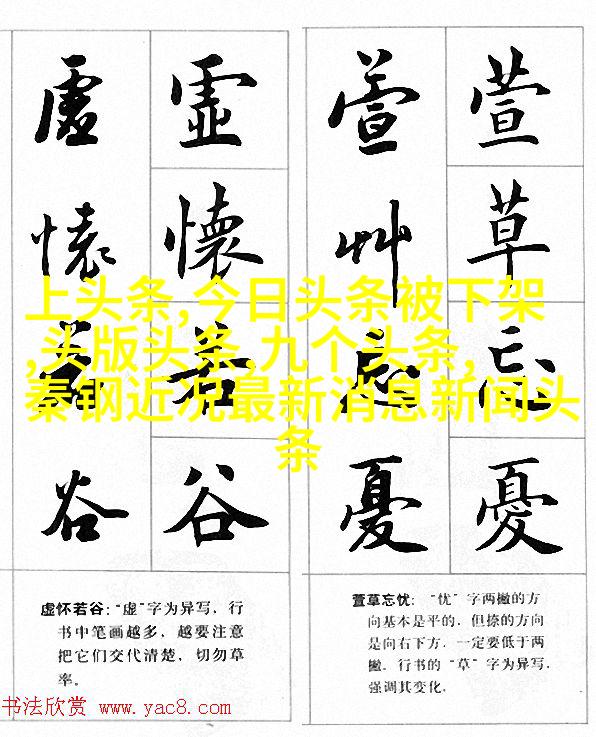 虚 虚 萱 萱
懷 懷 艸 草
若 若 忘 忘
谷 谷 憂 憂
上头条,今日头条被下架
,头版头条,九个头条,
秦钢近况最新消息新闻头
条
虚怀若谷:“虚”字为异写，行
书中笔画越多，越要注意
把它们交代清楚，切勿草
率。
萱草忘忧：“忧”字两撇的方
向基本是平的，但捺的方向
是向右下方，一定要低于两
撇。行书的“草”字为异写，
强调其变化。
书法欣赏 www.yac8.com